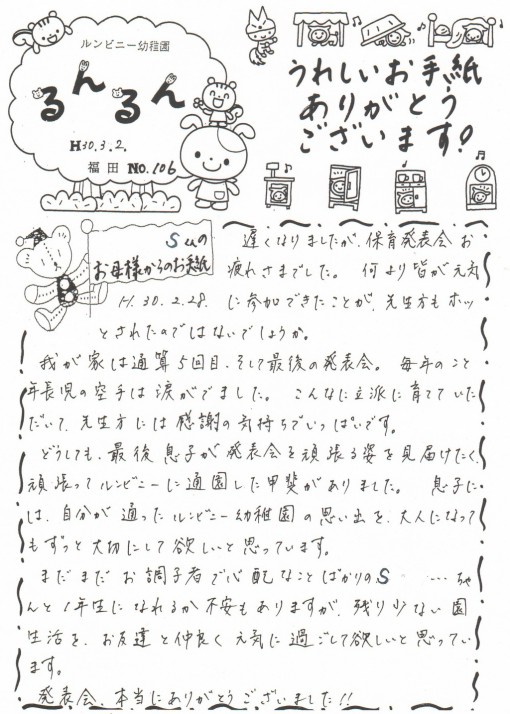 ルンビニー幼稚園
るんるん
H30.3.2.
福田 No.106
うれしいお手紙
ありがとう
ございます!
Sくんの
お母様からのお手紙
H.30.2.28.
遅くなりましたが、保育発表会お
疲れさまでした。 何より皆が元気
に参加できたことが、先生方もホッ
とされたのではないでしょうか。
我が家は通算5回目、そして最後の発表会。 毎年のこと
年長児の空手は涙がでました。 こんなに立派に育てていた
だいて、先生方には感謝の気持ちでいっぱいです。
どうしても、最後 息子が発表会を頑張る姿を見届けたく
頑張ってルンビニーに通園した甲斐がありました。 息子に
は、自分が通ったルンビニー幼稚園の思い出を、大人になって
もずっと大切にして欲しいと思っています。
まだまだお調子者で心配なことばかりのS ……ちゃ
んと1年生になれるか不安もありますが、残り少ない園
生活を、お友達と仲良く元気に過ごして欲しいと思ってい
ます。
発表会、本当にありがとうございました!!